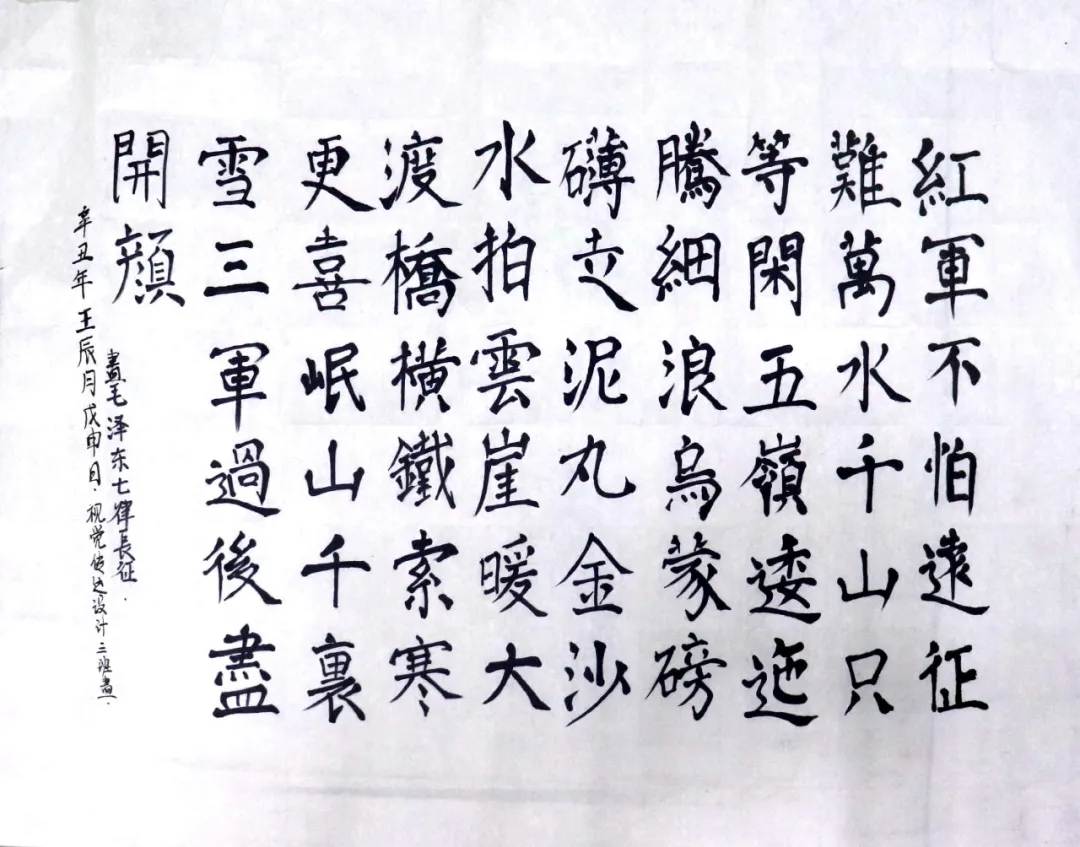 紅軍不怕遠征
難萬水千山只
等閑五嶺逶迤
騰細浪烏蒙磅
礴走泥丸金沙
水拍雲崖暖大
渡橋橫鐵索寒
更喜岷山千裏
雪三軍過後盡
開顏
書毛泽东七律長征.
辛丑年壬辰月戊申日.视觉传达设计三班書.